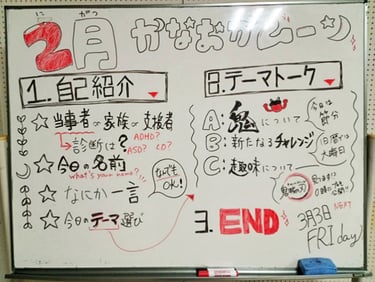 にがつ
2月 かなおかムーン
1. 自己紹介
☆ 当事者 or 家族 or 支援者
診断は? ADHD?
ASD? LD?
☆ 今日の名前
what's your name?
なんでもOK!
☆ なにか一言
☆ 今日のテーマ選び
2. テーマトーク
A: 鬼 について
今日は節分
B: 新たなるチャレンジ
旧暦では大晦日
C: 趣味について
3. END
NEXT
3月3日
FRIday